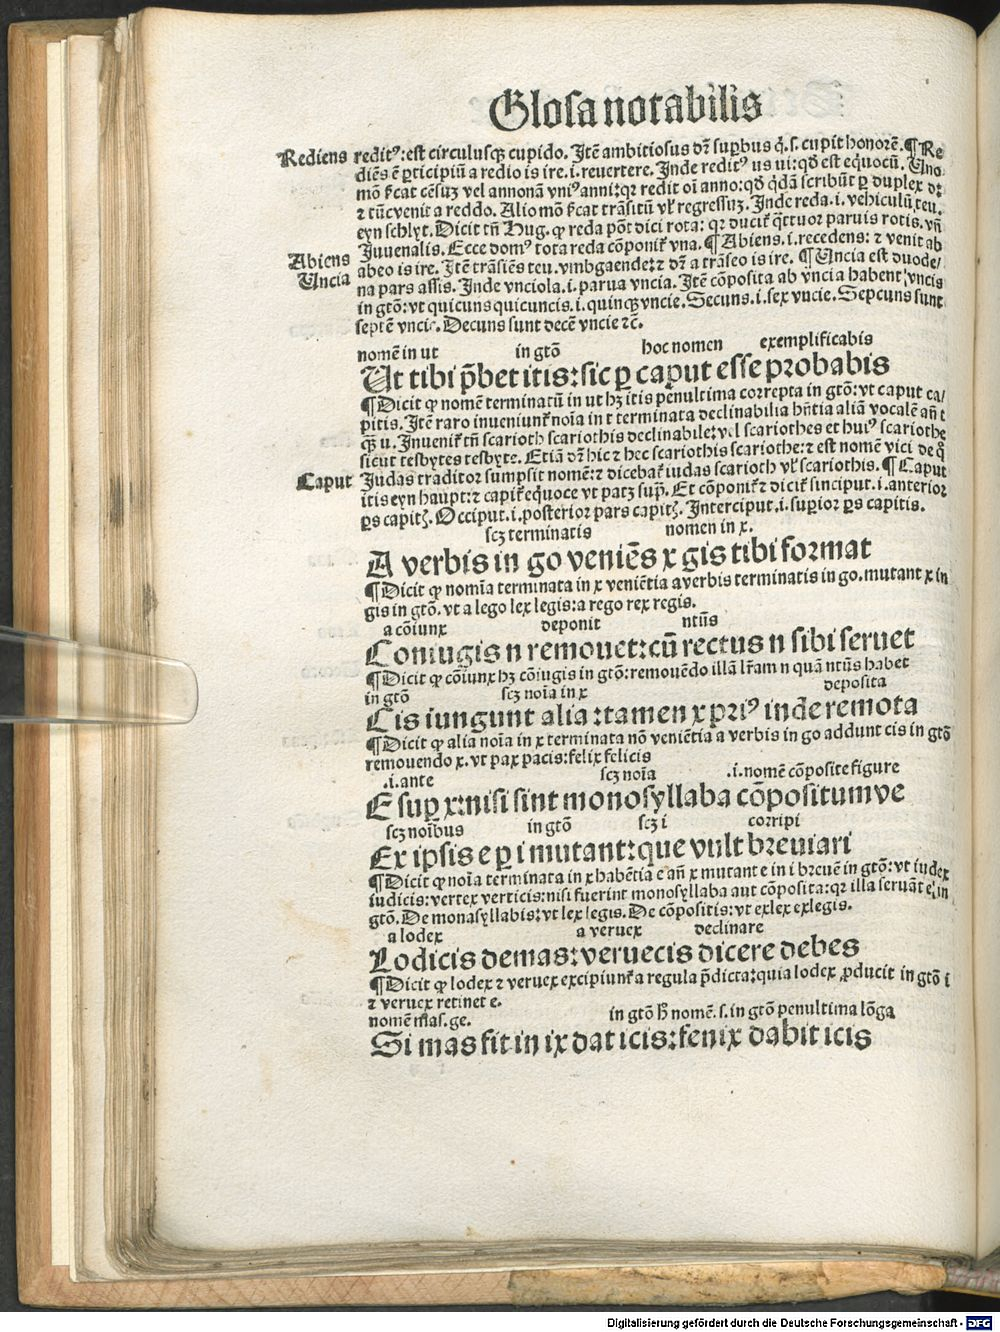 Glosa notabilis
Rediens reditꝰ: est circulusqꝫ cupido. Itē ambitiosus dr̄ suꝑbus q̇. s. cupit honorē. ¶ Re
diēs ē ꝑticipiū a redio is ire. i. reuertere. Inde reditꝰ us ui: qd̄ est equocū. Uno
mō s̄cat cēsuꝫ vel annonā vniꝰ anni: qꝛ redit oī anno: qd̄ q̇dā scribūt ꝑ duplex d:
ꝛ tūc venit a reddo. Alio mō s̄cat trāsitū vl̓ regressuꝫ. Inde reda. i. vehiculū teu.
eyn schlyt. Dicit tn̄ Hug. ꝙ reda pōt dici rota: qꝛ ducit̓ q̄ttuor paruis rotis. vn̄
Juuenalis. Ecce domꝰ tota reda cōponit̓ vna. ¶ Abiens. i. recedens: ꝛ venit ab
Abiens abeo is ire. Itē trāsiēs teu. vmbgaende: ꝛ dr̄ a trāseo is ire. ¶ Uncia est duode/
Uncia na pars assis. Inde vnciola. i. parua vncia. Itē cōposita ab vncia habent vncis
in gtō: vt quicuns quicuncis. i. quinqꝫ vncie. Secuns. i. sex vncie. Sepcuns sunt
septē vncie. Decuns sunt decē vncie ꝛc̄.
nomē in ut in gtō hoc nomen exemplificabis
Ut tibi p̄bet itis: sic ꝑ caput esse probabis
¶ Dicit ꝙ nomē terminatū in ut hꝫ itis penultima correpta in gtō: vt caput ca/
pitis. Itē raro inueniunt̓ noīa in t terminata declinabilia hn̄tia aliā vocalē an̄ t
qꝫ u. Inuenit̓ tn̄ scarioth scariothis declinabile: vel scariothes et huiꝰ scariothe
sicut tesbytes tesbyte. Etiā dr̄ hic ꝛ hec scariothis scariothe: ꝛ est nomē vici de q̊
Judas traditor sumpsit nomē: ꝛ dicebat̓ iudas scarioth vl̓ scariothis. ¶ Caput
Caput itis eyn haupt: ꝛ capit̓ equoce vt patꝫ sup̄. Et cōponit̓ ꝛ dicit̓ sinciput. i. anterior
ꝑs capitꝭ. Occiput. i. posterior pars capitꝭ. Interciput. i. suꝑior ꝑs capitis.
scꝫ terminatis nomen in x.
A verbis in go veniēs x gis tibi format
¶ Dicit ꝙ nomīa terminata in x veniētia a verbis terminatis in go. mutant x in
gis in gtō. vt a lego lex legis: a rego rex regis.
a cōiunx deponit ntūs
Coniugis n remouet: cū rectus n sibi seruet
¶ Dicit ꝙ cōiunx hꝫ cōiugis in gtō: remouēdo illā lr̄am n quā ntūs habet
in gtō scꝫ noīa in x deposita
Cis iungunt alia: tamen x priꝰ inde remota
¶ Dicit ꝙ alia noīa in x terminata nō veniētia a verbis in go addunt cis in gtō
remouendo x. vt pax pacis: felix felicis
.i. ante scꝫ noīa .i. nomē cōposite figure
E suꝑ x: nisi sint monosyllaba cōpositumve
scꝫ noībus in gtō scꝫ i corripi
Ex ipsis e ꝑ i mutant: que vult breuiari
¶ Dicit ꝙ noīa terminata in x habētia e an̄ x mutant e in i breuē in gtō: vt iudex
iudicis: vertex verticis: nisi fuerint monosyllaba aut cōposita: qꝛ illa seruāt e in
gtō. De monasyllabis: vt lex legis. De cōpositis: vt exlex exlegis.
a lodex a veruex declinare
Lodicis demas: veruecis dicere debes
¶ Dicit ꝙ lodex ꝛ veruex excipiunt̓ a regula p̄dicta: quia lodex ꝓducit in gtō i
ꝛ veruex retinet e.
nomē mas. ge. in gtō h̄ nomē. s. in gtō penultima lōga
Si mas fit in ix dat icis: fenix dabit icis
Digitalisierung gefördert durch die Deutsche Forschungsgemeinschaft - DFG